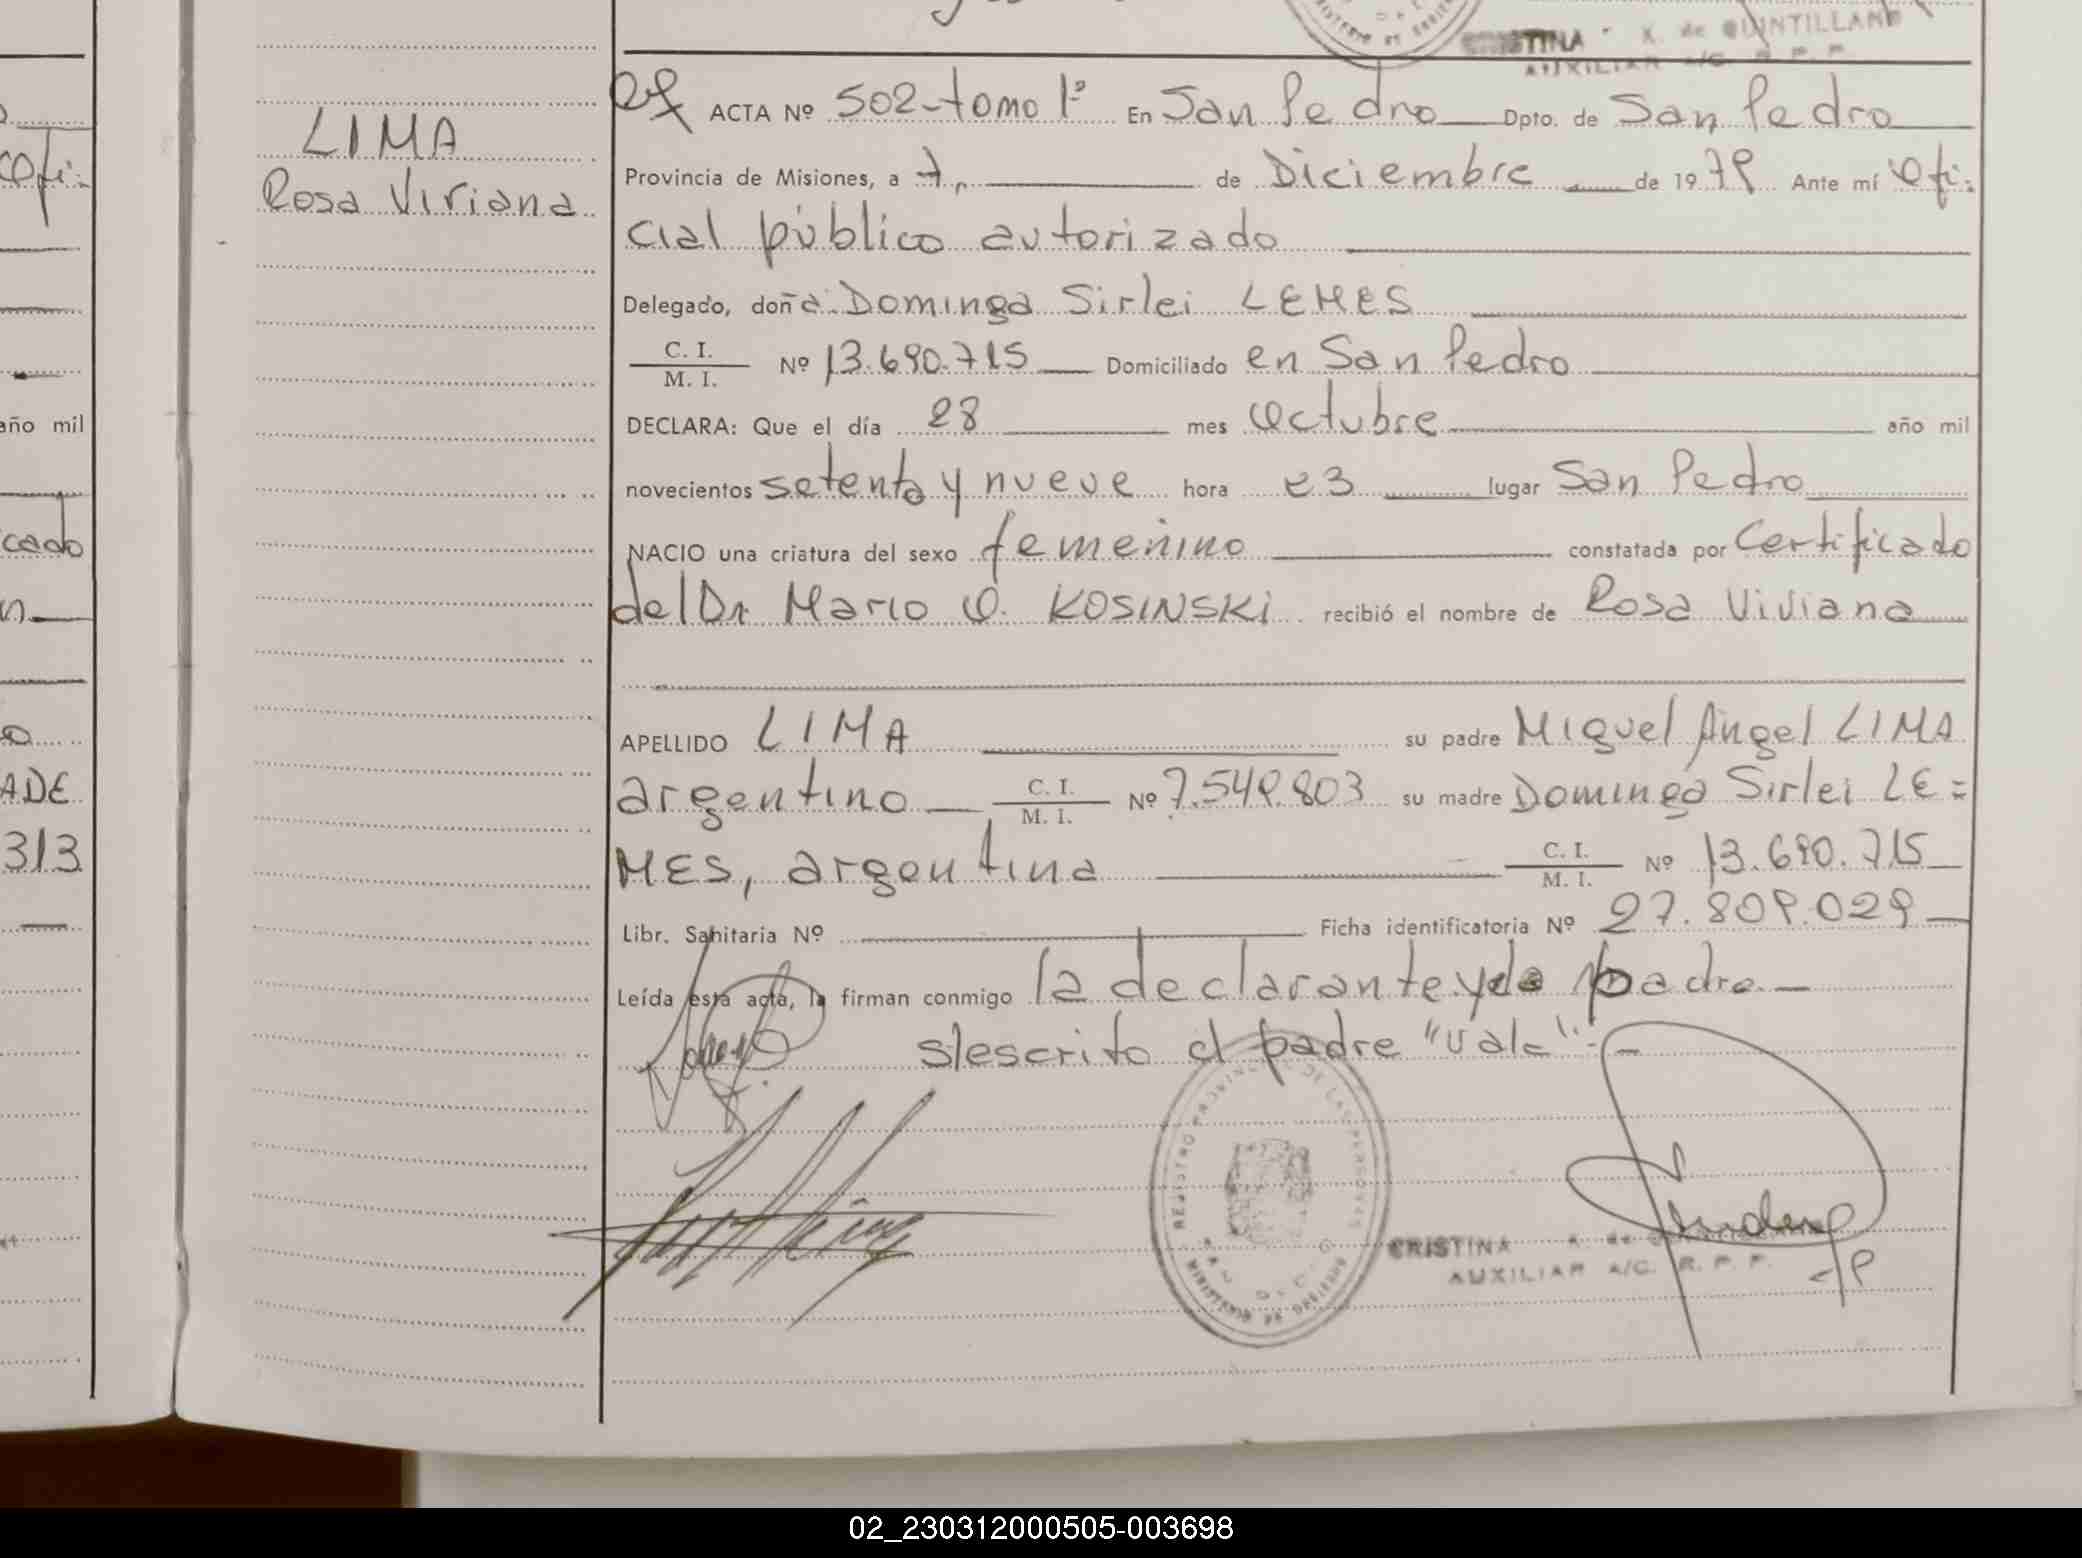 CRISTINA K. de QUINTILLAN
AUXILIAR A/C. R. P. P.
LIMA
Rosa Viviana
ACTA Nº 502-tomo 1º En San Pedro Dpto. de San Pedro
Provincia de Misiones, a 7, de Diciembre de 1979 Ante mí Ofi-
cial público autorizado
Delegado, doña Dominga Sirlei LEMES
C. I.
M. I. Nº 13.690.715 Domiciliado en San Pedro
DECLARA: Que el día 28 mes Octubre año mil
novecientos setenta y nueve hora 23 lugar San Pedro
NACIO una criatura del sexo femenino constatada por Certificado
del Dr. Mario O. KOSINSKi recibió el nombre de Rosa Viviana
APELLIDO LIMA su padre Miguel Angel LIMA
argentino C. I.
M. I. Nº 7.549.803 su madre Dominga Sirlei LE=
MES, argentina C. I.
M. I. Nº 13.690.715
Libr. Sanitaria Nº Ficha identificatoria Nº 27.809.029
Leída esta acta, la firman conmigo la declarante y padre.
s/escrito el padre "vale".
REGISTRO PROVINCIAL DE LAS PERSONAS
MINISTERIO DE GOBIERNO
CRISTINA K. de
AUXILIAR A/C. R. P. P.
año mil
cado
ADE
313
02_230312000505-003698